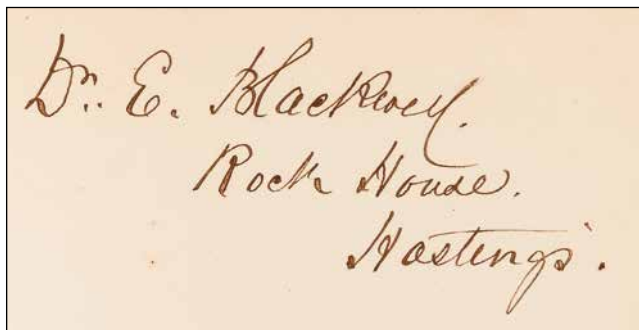 Dr. E. Blackwell.
Rock House.
Hastings.